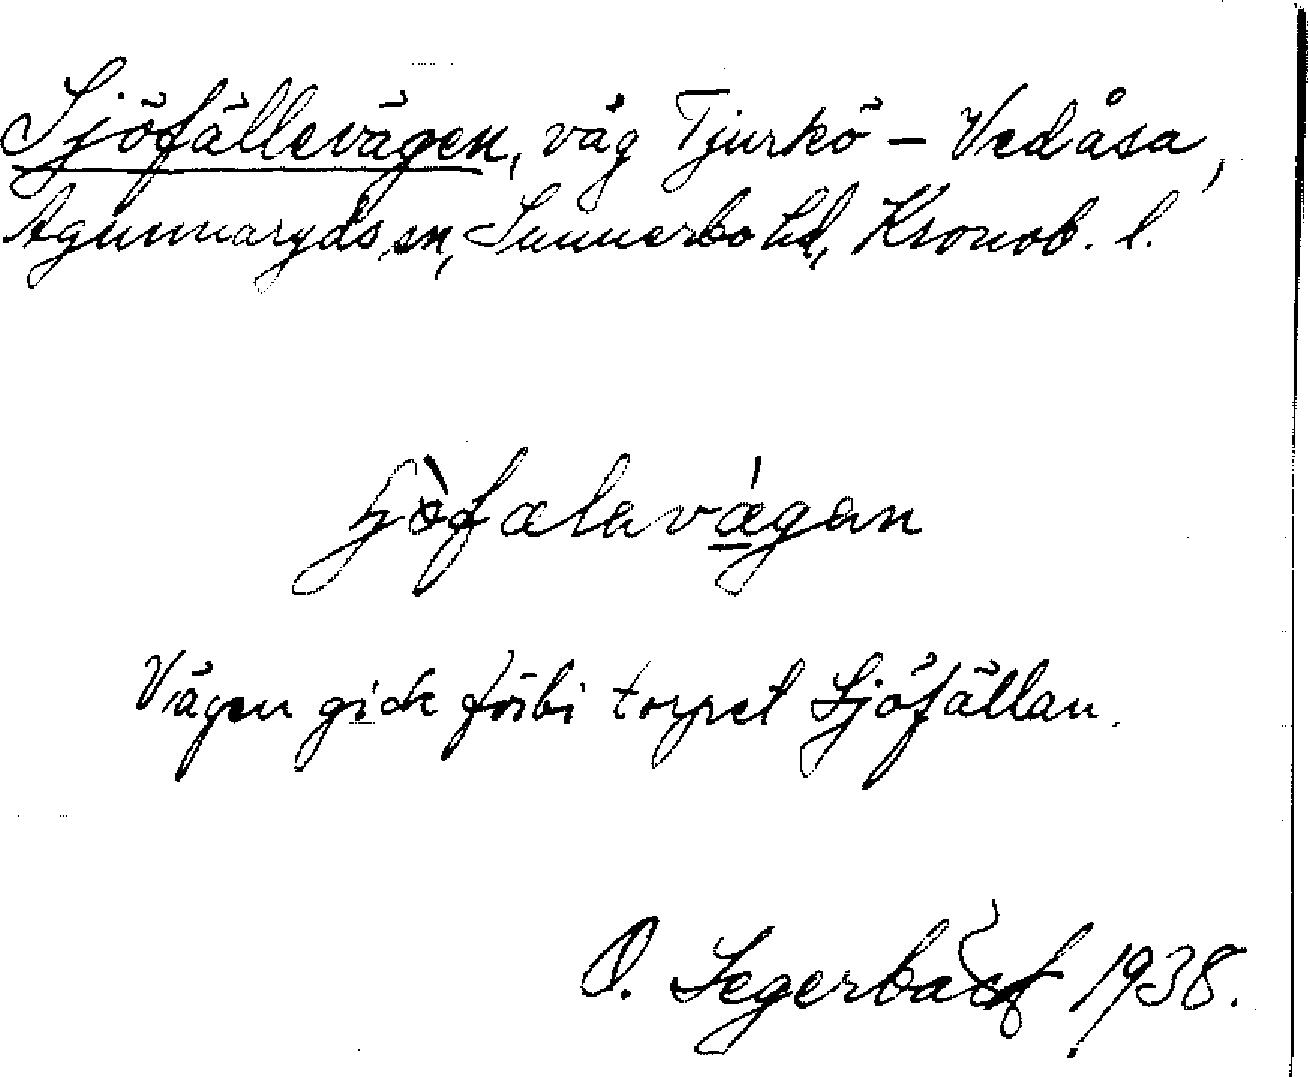 Sjöfällevägen, väg Tjurkö – Vedåsa,
Agunnaryds sn, Sunnerbo hd, Kronob. l.
ʃö̀fælavǽgan
Vägen gick förbi torpet Sjöfällan.
O. Segerbäck 1938.